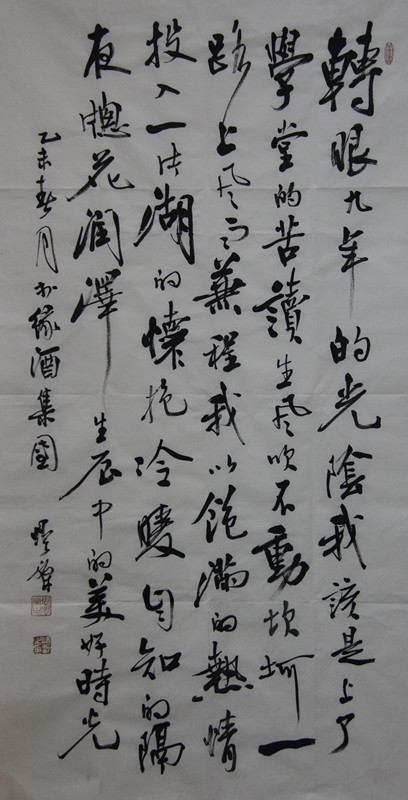 轉眼九年的光陰我該是上了
學堂的苦讀生風吹不動坎坷一
路上風雨兼程我以飽滿的熱情
投入一汪湖的懷抱冷暖自知的隔
夜憁花潤澤生辰中的美好時光
乙未春月於緣酒集團